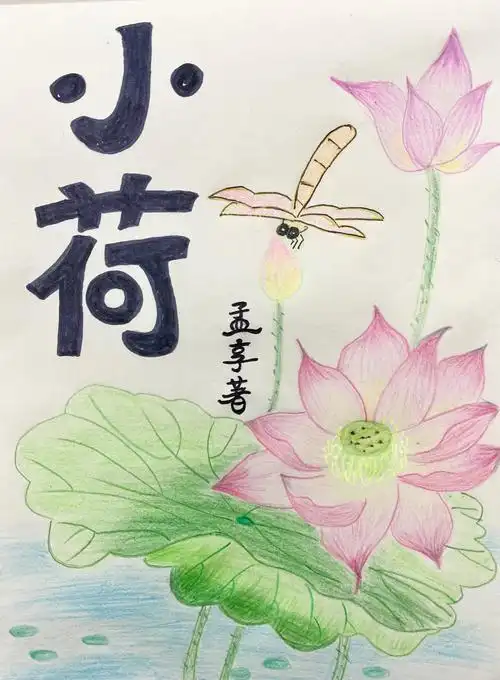 小荷
孟享著